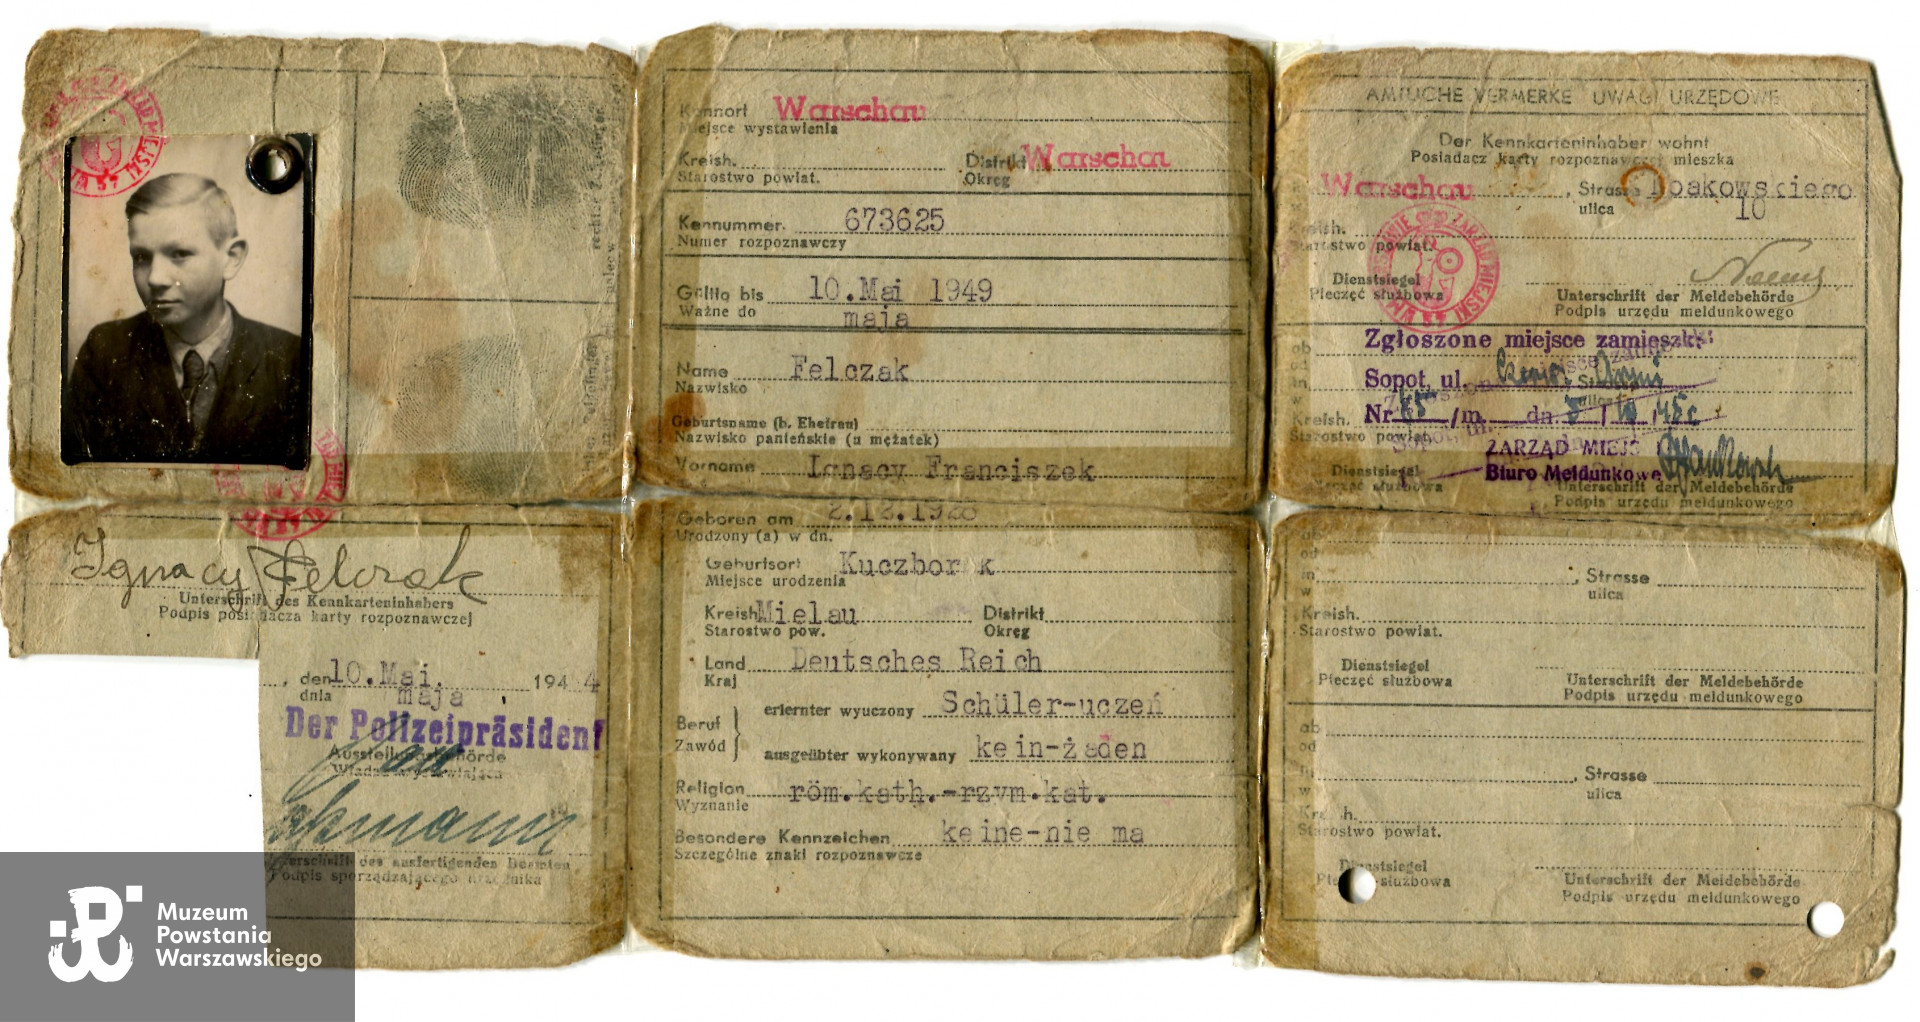 Ignacy Felczak
Unterschrift des Kennkarteninhabers
Podpis posiadacza karty rozpoznawczej
, den 10. Mai. 1944
dnia maja
Der Polizeipräsident
Ausstellungsbehörde
Władza wystawiająca
Unterschrift des ausfertigenden Beamten
Podpis sporządzającego urzędnika
Kennort Warschau
Miejsce wystawienia
Kreish. Distrikt Warschau
Starostwo powiat. Okręg
Kennummer. 673625
Numer rozpoznawczy
Gültig bis 10.Mai 1949
Ważne do maja
Name Felczak
Nazwisko
Geburtsname (b. Ehefrau)
Nazwisko panieńskie (u mężatek)
Vorname Ignacy Franciszek
Geboren am 2.12.1928
Urodzony (a) w dn.
Geburtsort Kuczborek
Miejsce urodzenia
Kreish. Mielau Distrikt
Starostwo pow. Okręg
Land Deutsches Reich
Kraj
Beruf erlernter wyuczony Schüler-uczeń
Zawód ausgeübter wykonywany kein-żaden
Religion röm.kath.-rzym.kat.
Wyznanie
Besondere Kennzeichen keine-nie ma
Szczególne znaki rozpoznawcze
AMTLICHE VERMERKE UWAGI URZĘDOWE
Der Kennkarteninhaber wohnt
Posiadacz karty rozpoznawczej mieszka
Warschau, Strasse
ulica 10
Kreish.
Starostwo powiat.
Dienstsiegel
Pieczęć służbowa Unterschrift der Meldebehörde
Podpis urzędu meldunkowego
Zgłoszone miejsce zamieszk.
Sopot, ul.
Nr /m. dn.
Kreish.
Starostwo powiat.
ZARZĄD MIEJS
Biuro Meldunkowe
Dienstsiegel
Pieczęć służbowa Unterschrift der Meldebehörde
Podpis urzędu meldunkowego
ab
od
in , Strasse
w ulica
Kreish.
Starostwo powiat.
Dienstsiegel
Pieczęć służbowa Unterschrift der Meldebehörde
Podpis urzędu meldunkowego
ab
od
in , Strasse
w ulica
Kreish.
Starostwo powiat.
Dienstsiegel
Pieczęć służbowa Unterschrift der Meldebehörde
Podpis urzędu meldunkowego
Muzeum
Powstania
Warszawskiego